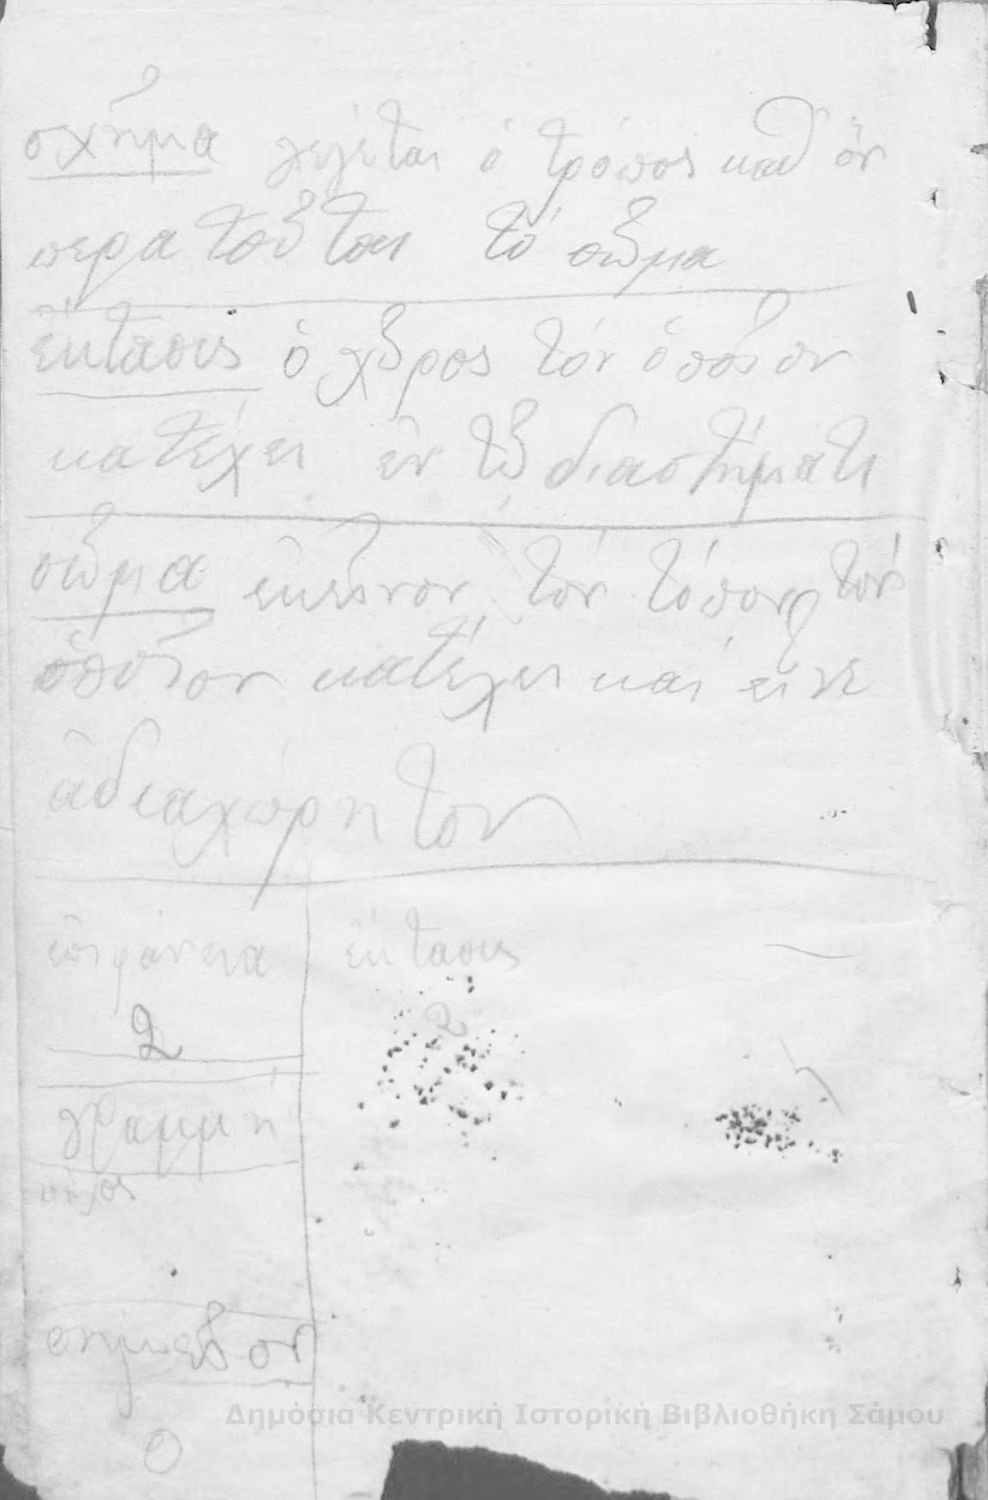 σχῆμα λέγεται ὁ τρόπος καθ' ὃν
περατοῦται τὸ σῶμα
ἔκτασις ὁ χῶρος τὸν ὁποῖον
κατέχει ἐν τῷ διαστήματι
σῶμα ἐκεῖνον τὸν τόπον τὸν
ὁποῖον κατέχει καὶ εἶνε
ἀδιαχώρητον
ἐπιφάνεια ἔκτασις
2 2
γραμμή
σημεῖον
0
Δημόσια Κεντρική Ιστορική Βιβλιοθήκη Σάμου